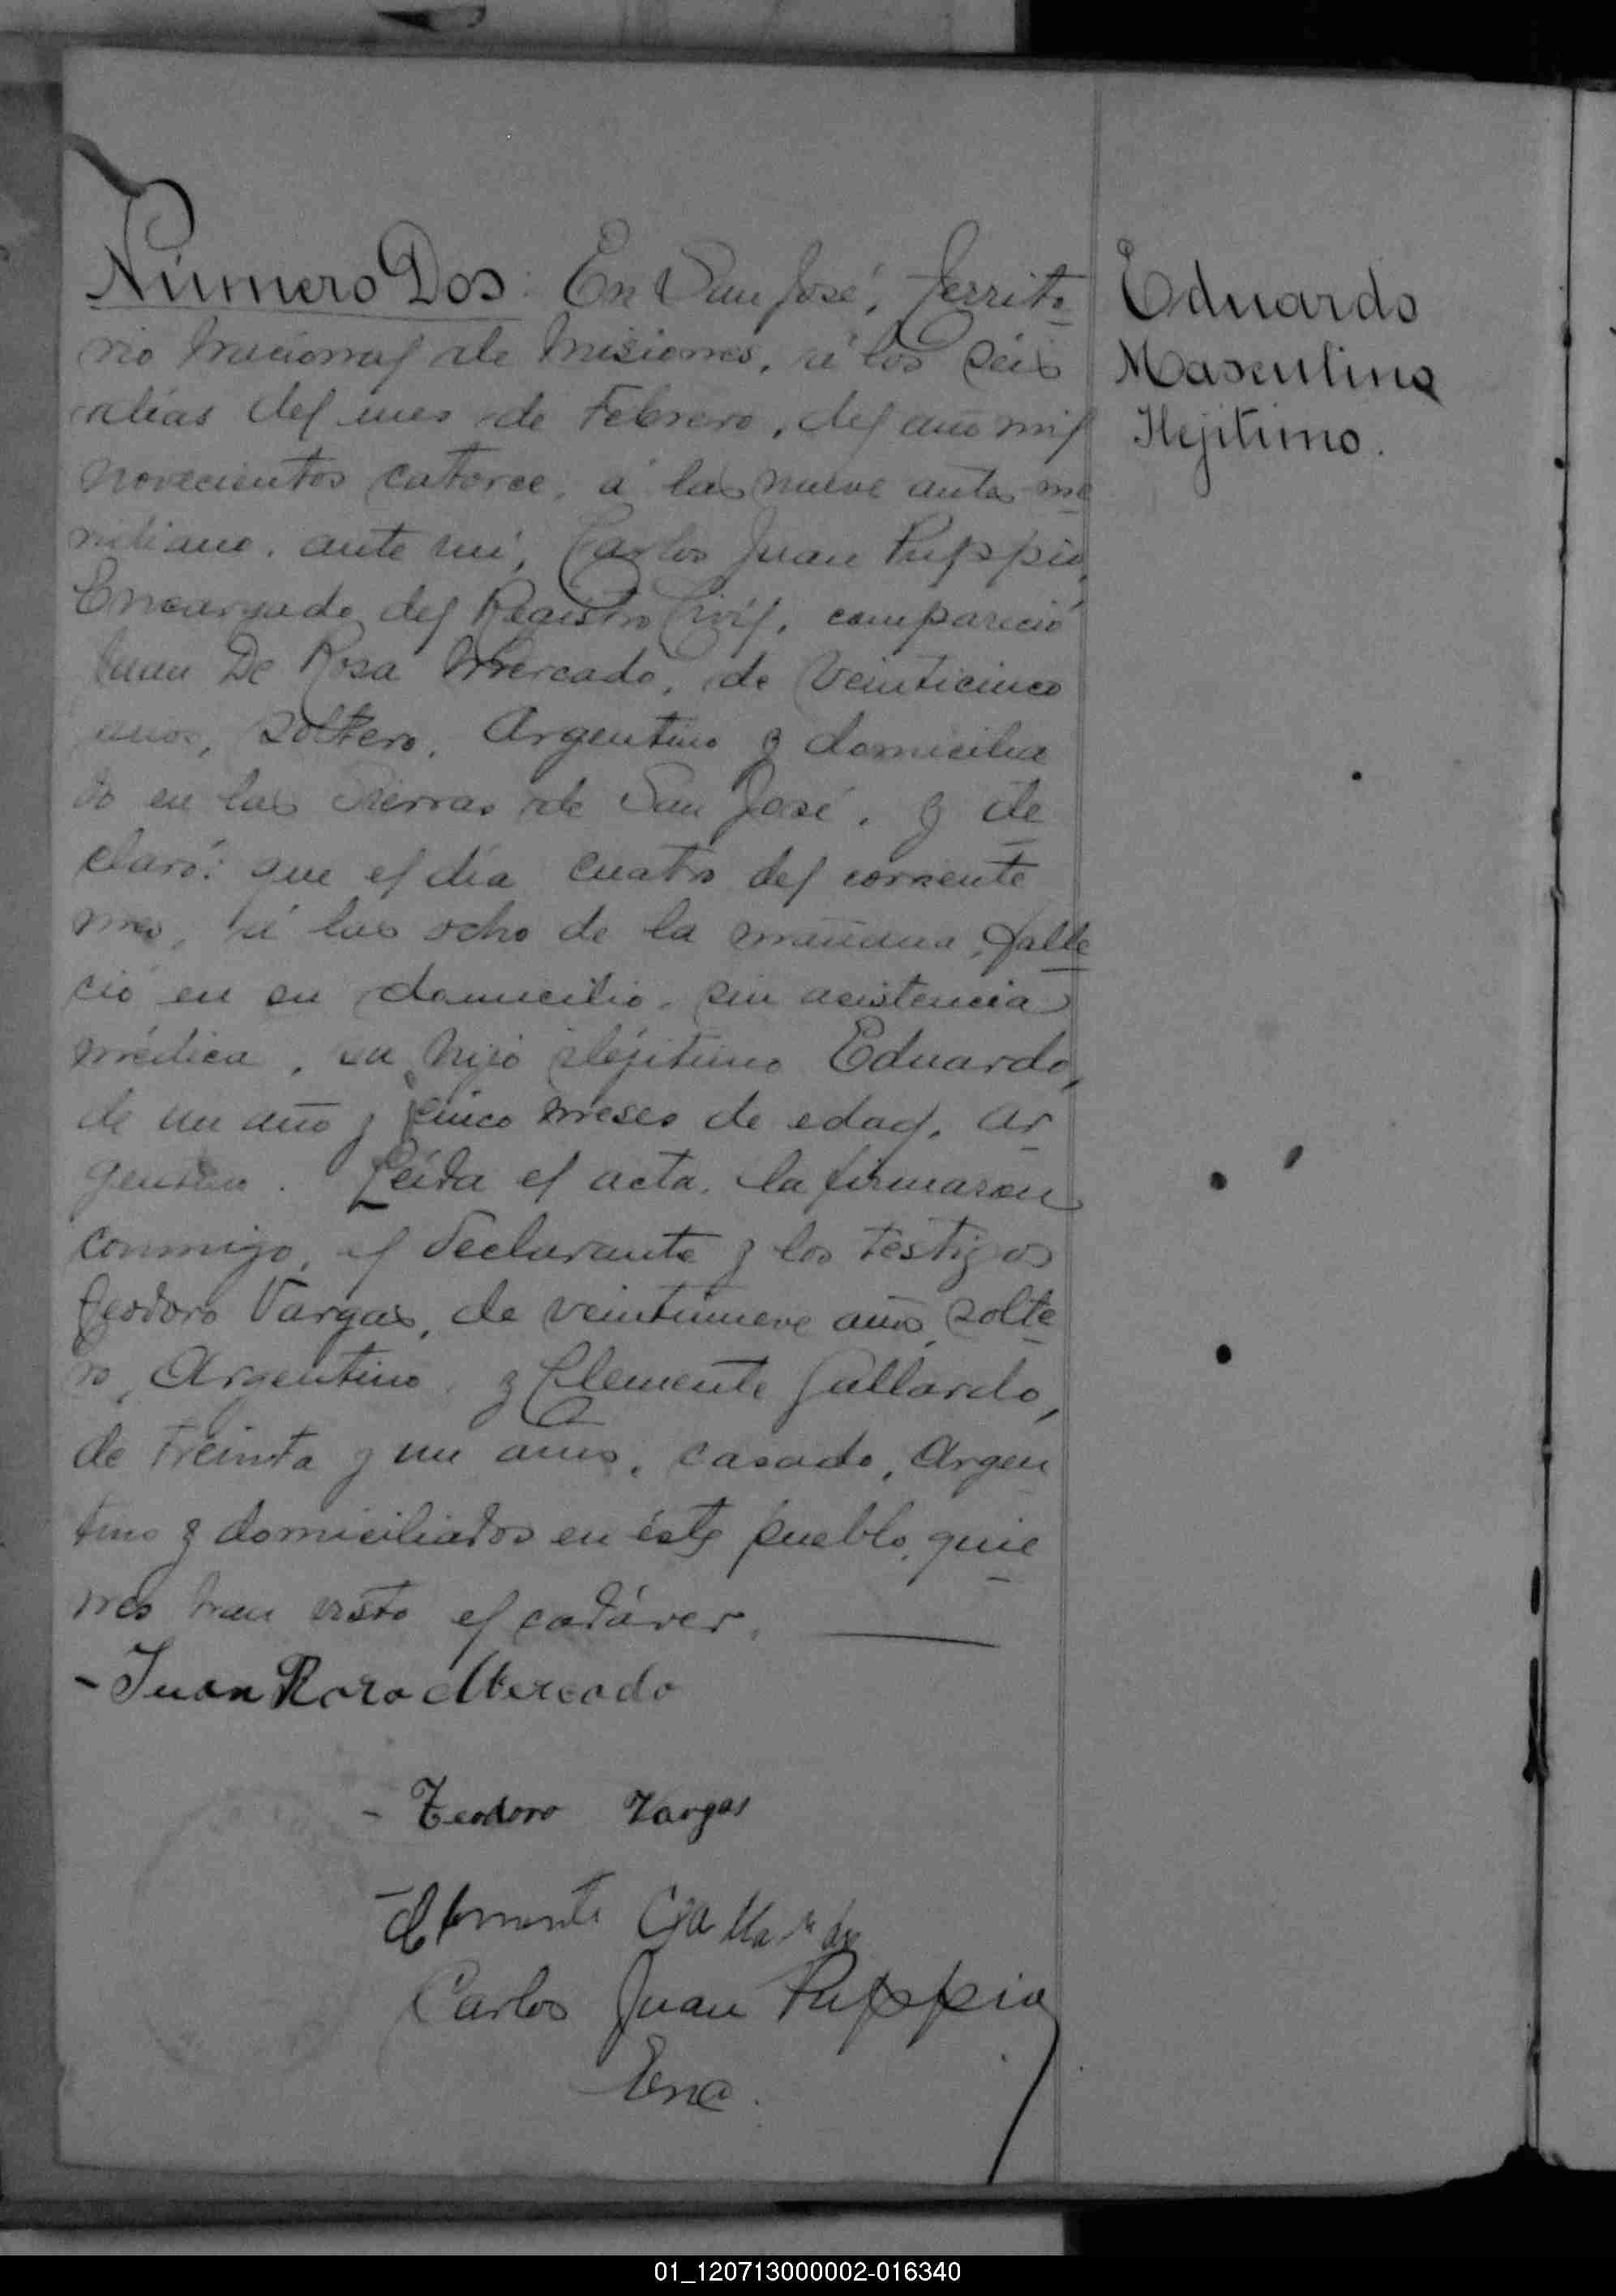 Número Dos. En San José, Territo
rio Nacional de Misiones, á los séis
días del mes de Febrero, del año mil
novecientos catorce, á las nueve antes me
ridiano, ante mí, Carlos Juan Puppio,
Encargado del Registro Civil, compareció
Juan De Rosa Mercado, de veinticinco
años, soltero, Argentino y domicilia
do en las Sierras de San José, y de
claró: que el día cuatro del corriente
mes, á las ocho de la mañana, falle
ció en su domicilio, sin asistencia
médica, su hijo iléjitimo Eduardo,
de un año y cinco meses de edad, Ar
gentino. Leída el acta, la firmaron
conmigo, el declarante y los testigos
Teodoro Vargas, de veintinueve años, solte
ro, Argentino, y Clemente Gallardo,
de treinta y un años, casado, Argen
tino y domiciliados en éste pueblo, quie
nes han visto el cadáver.
- Juan Roza Mercado
- Teodoro Vargas
- Clemente Gallardo
Carlos Juan Puppio
Enc.
Eduardo
Masculino
Ilejitimo.
01_120713000002-016340